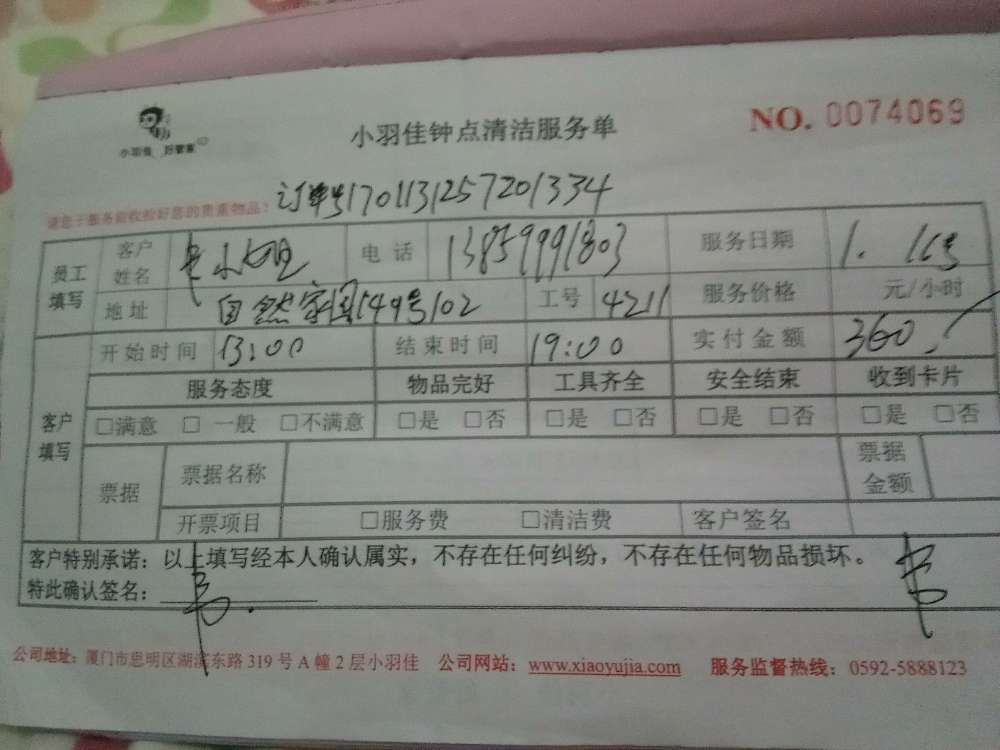 小羽佳 好管家
小羽佳钟点清洁服务单
NO. 0074069
订单号1701131257201334
请您于服务前收捡好您的贵重物品:
员工填写 客户姓名 小姐 电话 13859991803 服务日期 1. 16号
地址 自然家园149号102 工号 4211 服务价格 元/小时
客户填写 开始时间 13:00 结束时间 19:00 实付金额 360
服务态度 物品完好 工具齐全 安全结束 收到卡片
□满意 □一般 □不满意 □是 □否 □是 □否 □是 □否 □是 □否
票据 票据名称 票据金额
开票项目 □服务费 □清洁费 客户签名
客户特别承诺:以上填写经本人确认属实,不存在任何纠纷,不存在任何物品损坏。
特此确认签名:
公司地址:厦门市思明区湖滨东路 319 号 A 幢 2 层小羽佳 公司网站:www.xiaoyujia.com 服务监督热线:0592-5888123